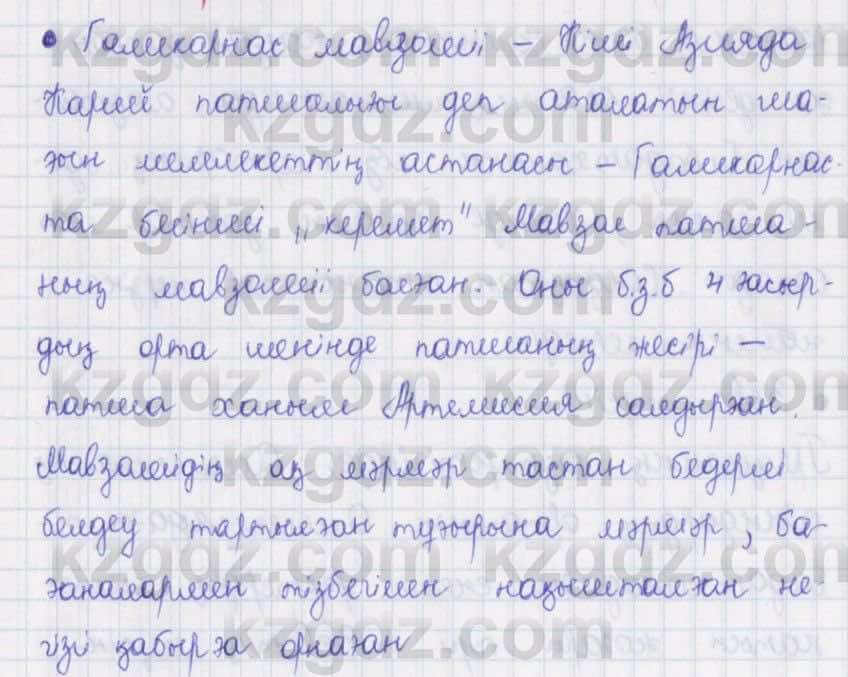 • Галикарнас мавзолейі – Кіші Азияда
Карий патшалығы деп аталатын ша-
ғын мемлекеттің астанасы – Галикарнас-
та бесінші „керемет" Мавзол патша-
ның мавзолейі болған. Оны б.з.б 4 ғасыр-
дың орта шенінде патшаның жесірі –
патша ханым Артемисия салдырған.
Мавзолейдің ақ мәрмәр тастан бедерлі
белдеу тартылған тұғырына мәрмәр, ба-
ғаналармен тізбегімен нақышталған не-
гізі қабырға орнаған
kzgdz.com